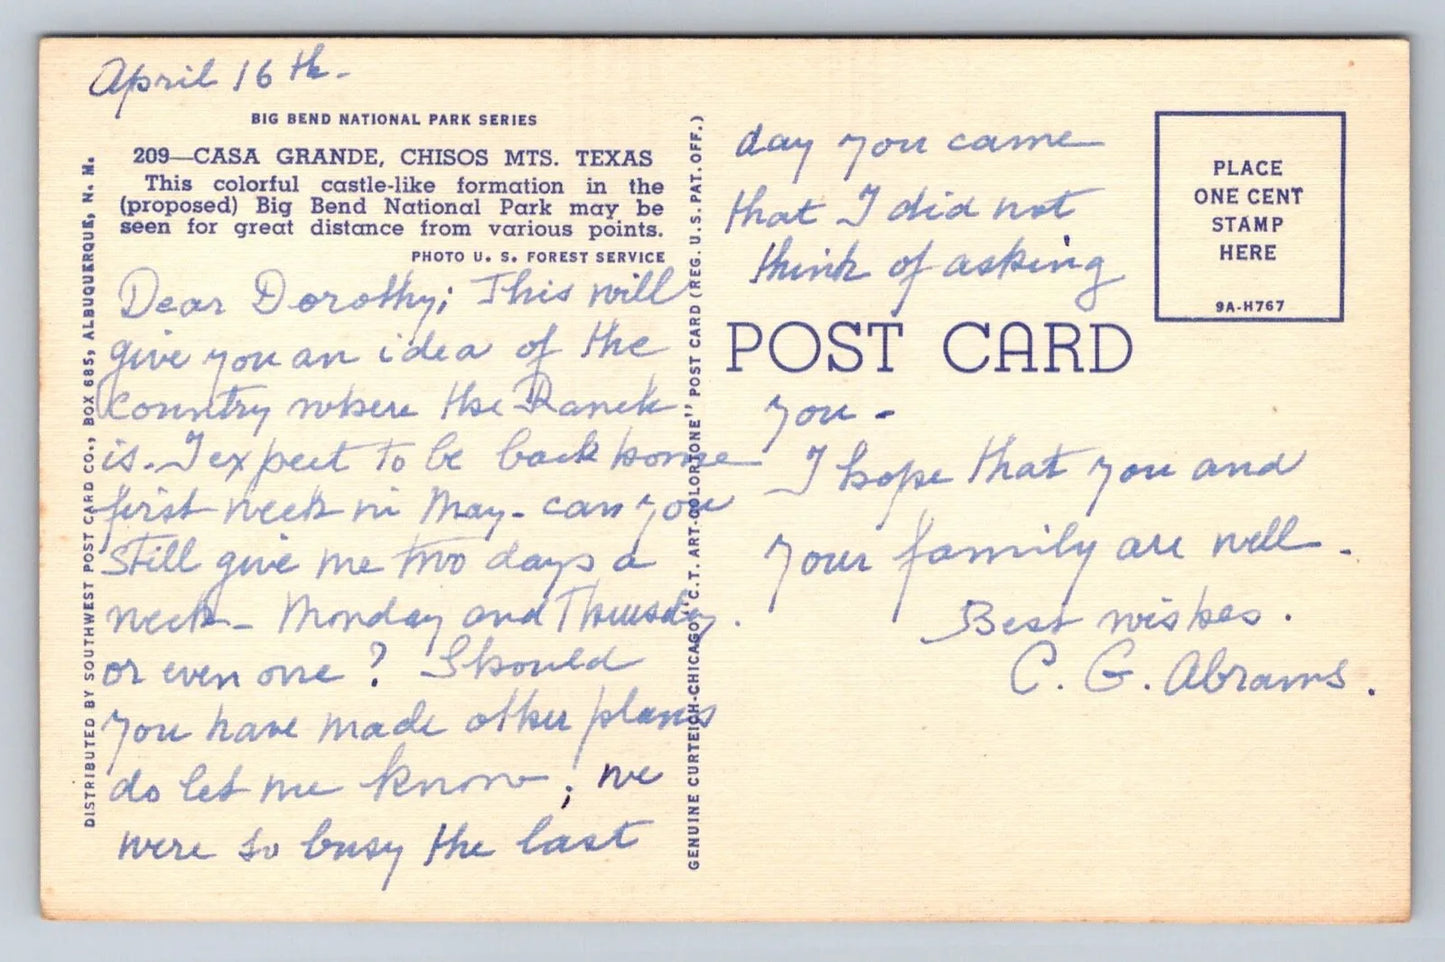 April 16th-
BIG BEND NATIONAL PARK SERIES
209—CASA GRANDE, CHISOS MTS. TEXAS
This colorful castle-like formation in the
(proposed) Big Bend National Park may be
seen for great distance from various points.
PHOTO U. S. FOREST SERVICE
Dear Dorothy; This will
give you an idea of the
country where the Ranch
is. I expect to be back home
first week in May - can you
still give me two days a
week - Monday and Thursday.
or even one? Should
you have made other plans
do let me know; we
were so busy the last
DISTRIBUTED BY SOUTHWEST POST CARD CO., BOX 685, ALBUQUERQUE, N. M.
GENUINE CURTEICH-CHICAGO "C.T. ART-COLORTONE" POST CARD (REG. U.S. PAT. OFF.)
day you came
that I did not
think of asking
POST CARD
you -
I hope that you and
your family are well -
Best wishes.
C. G. Abrams.
PLACE
ONE CENT
STAMP
HERE
9A-H767